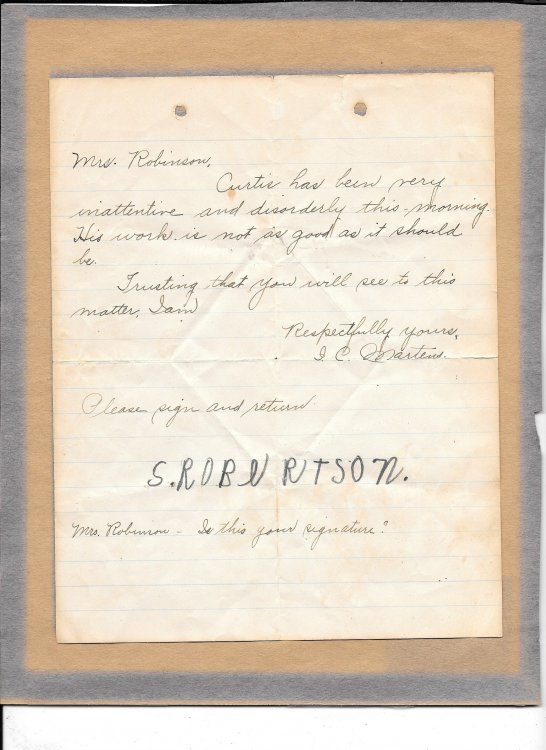 Mrs. Robinson,
Curtis has been very
inattentive and disorderly this morning.
His work is not as good as it should
be.
Trusting that you will see to this
matter, I am
Respectfully yours,
I. C. Martens.
Please sign and return
S. ROBURTSON.
Mrs. Robinson - Is this your signature?